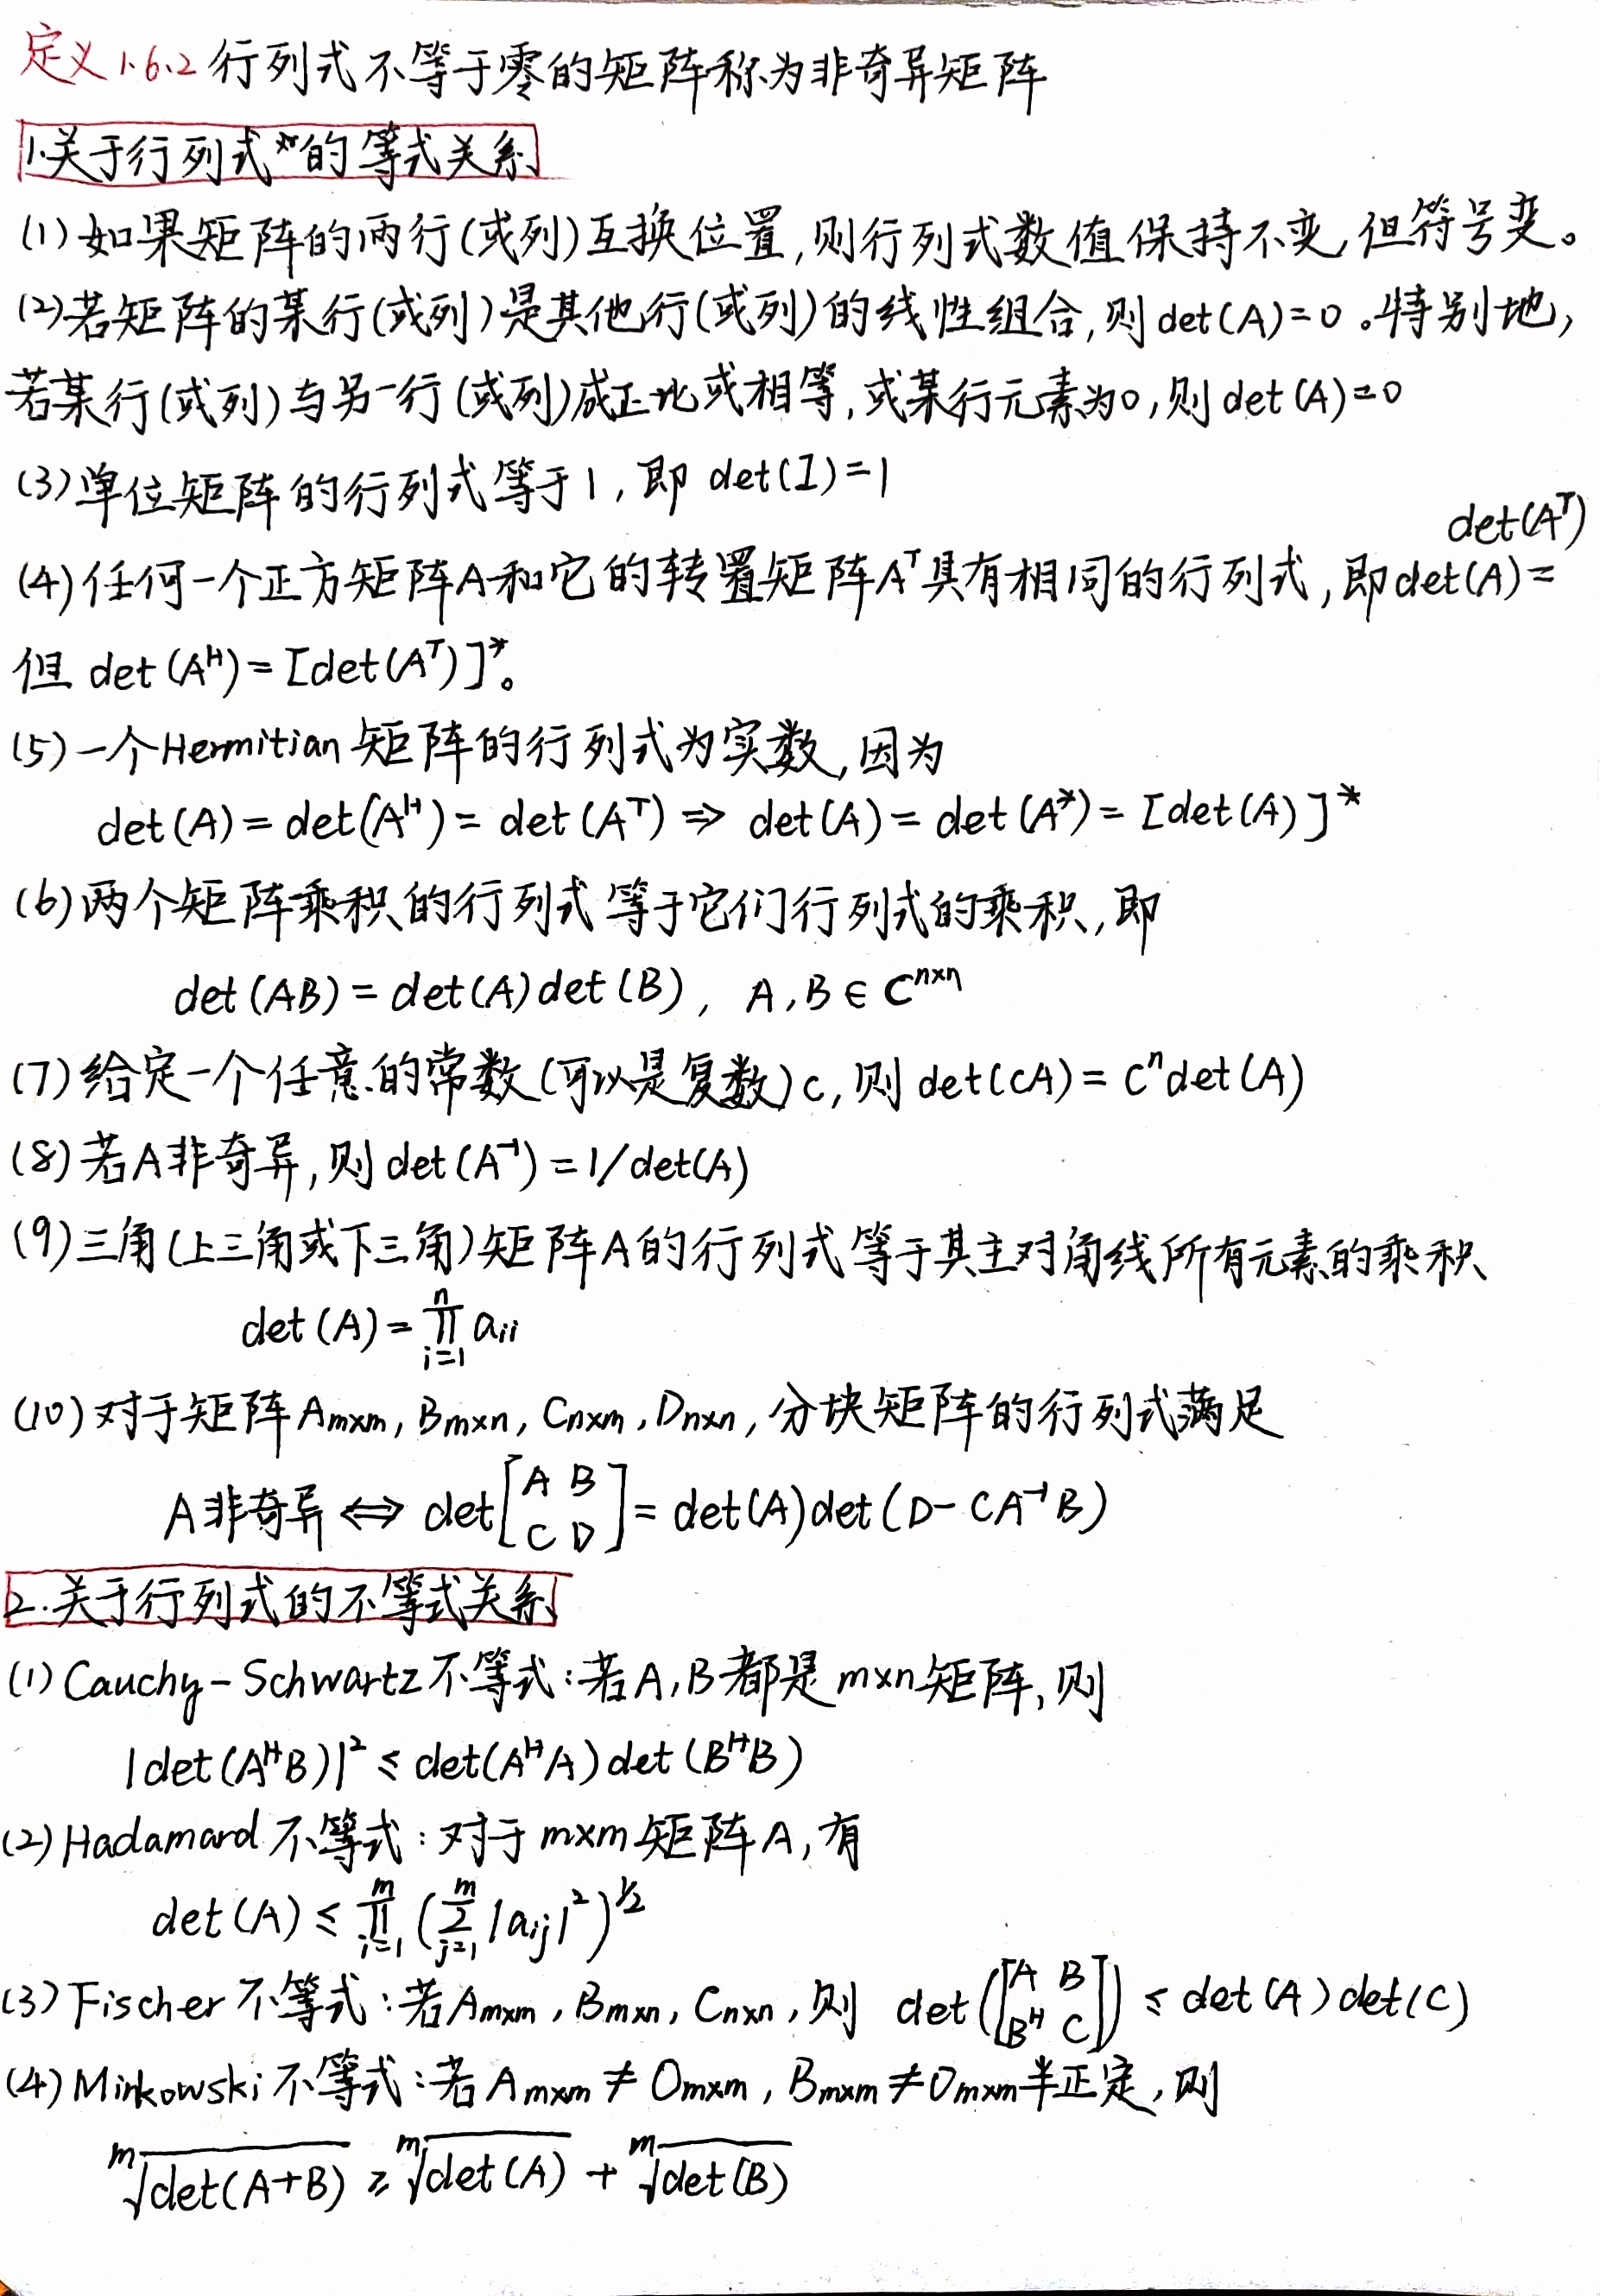 定义1.6.2 行列式不等于零的矩阵称为非奇异矩阵
1.关于行列式的等式关系
(1) 如果矩阵的两行(或列)互换位置,则行列式数值保持不变,但符号变。
(2)若矩阵的某行(或列)是其他行(或列)的线性组合,则det(A)=0。特别地,
若某行(或列)与另一行(或列)成正比或相等,或某行元素为0,则det(A)=0
(3)单位矩阵的行列式等于1,即 det(I)=1
(4)任何一个正方矩阵A和它的转置矩阵Aᵀ具有相同的行列式,即det(A)= det(Aᵀ)
但 det(Aᴴ)=[det(Aᵀ)]*。
(5)一个Hermitian矩阵的行列式为实数,因为
det(A)=det(Aᴴ)=det(Aᵀ)⇒ det(A)=det(A*)=[det(A)]*
(6)两个矩阵乘积的行列式等于它们行列式的乘积,即
det(AB)=det(A)det(B), A,B∈Cⁿˣⁿ
(7)给定一个任意的常数(可以是复数)c,则 det(cA)=cⁿdet(A)
(8)若A非奇异,则det(A⁻¹)=1/det(A)
(9)三角(上三角或下三角)矩阵A的行列式等于其主对角线所有元素的乘积
det(A)=∏_{i=1}^{n} a_{ii}
(10)对于矩阵A_{m×m}, B_{m×n}, C_{n×m}, D_{n×n},分块矩阵的行列式满足
A非奇异⇔ det[A B; C D]=det(A)det(D-CA⁻¹B)
2.关于行列式的不等式关系
(1) Cauchy-Schwartz不等式:若A,B都是m×n矩阵,则
|det(AᴴB)|²≤det(AᴴA)det(BᴴB)
(2)Hadamard不等式:对于m×m矩阵A,有
det(A)≤∏_{i=1}^{m}(∑_{j=1}^{m}|a_{ij}|²)^{1/2}
(3)Fischer不等式:若A_{m×m}, B_{m×n}, C_{n×n},则 det([A B; Bᴴ C])≤det(A)det(C)
(4)Minkowski不等式:若A_{m×m}≠O_{m×m}, B_{m×m}≠O_{m×m}半正定,则
ᵐ√det(A+B) ≥ ᵐ√det(A) + ᵐ√det(B)